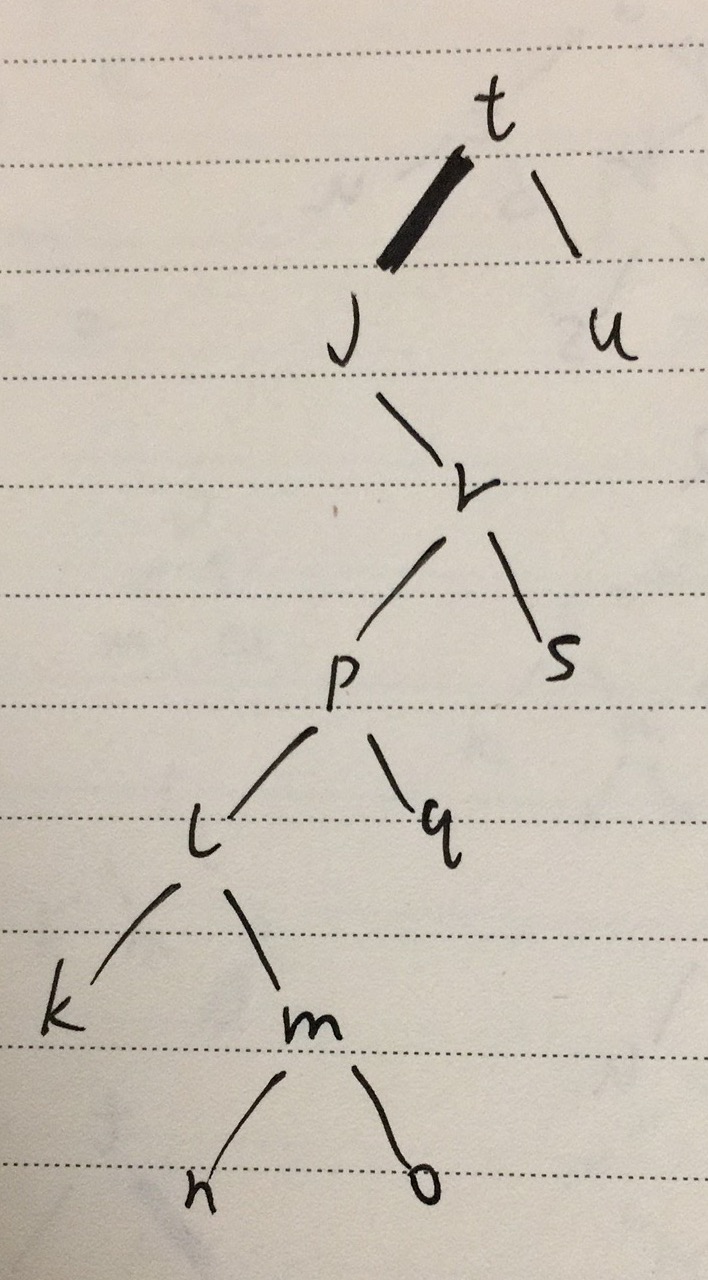 t
J u
r
p s
l q
k m
n o